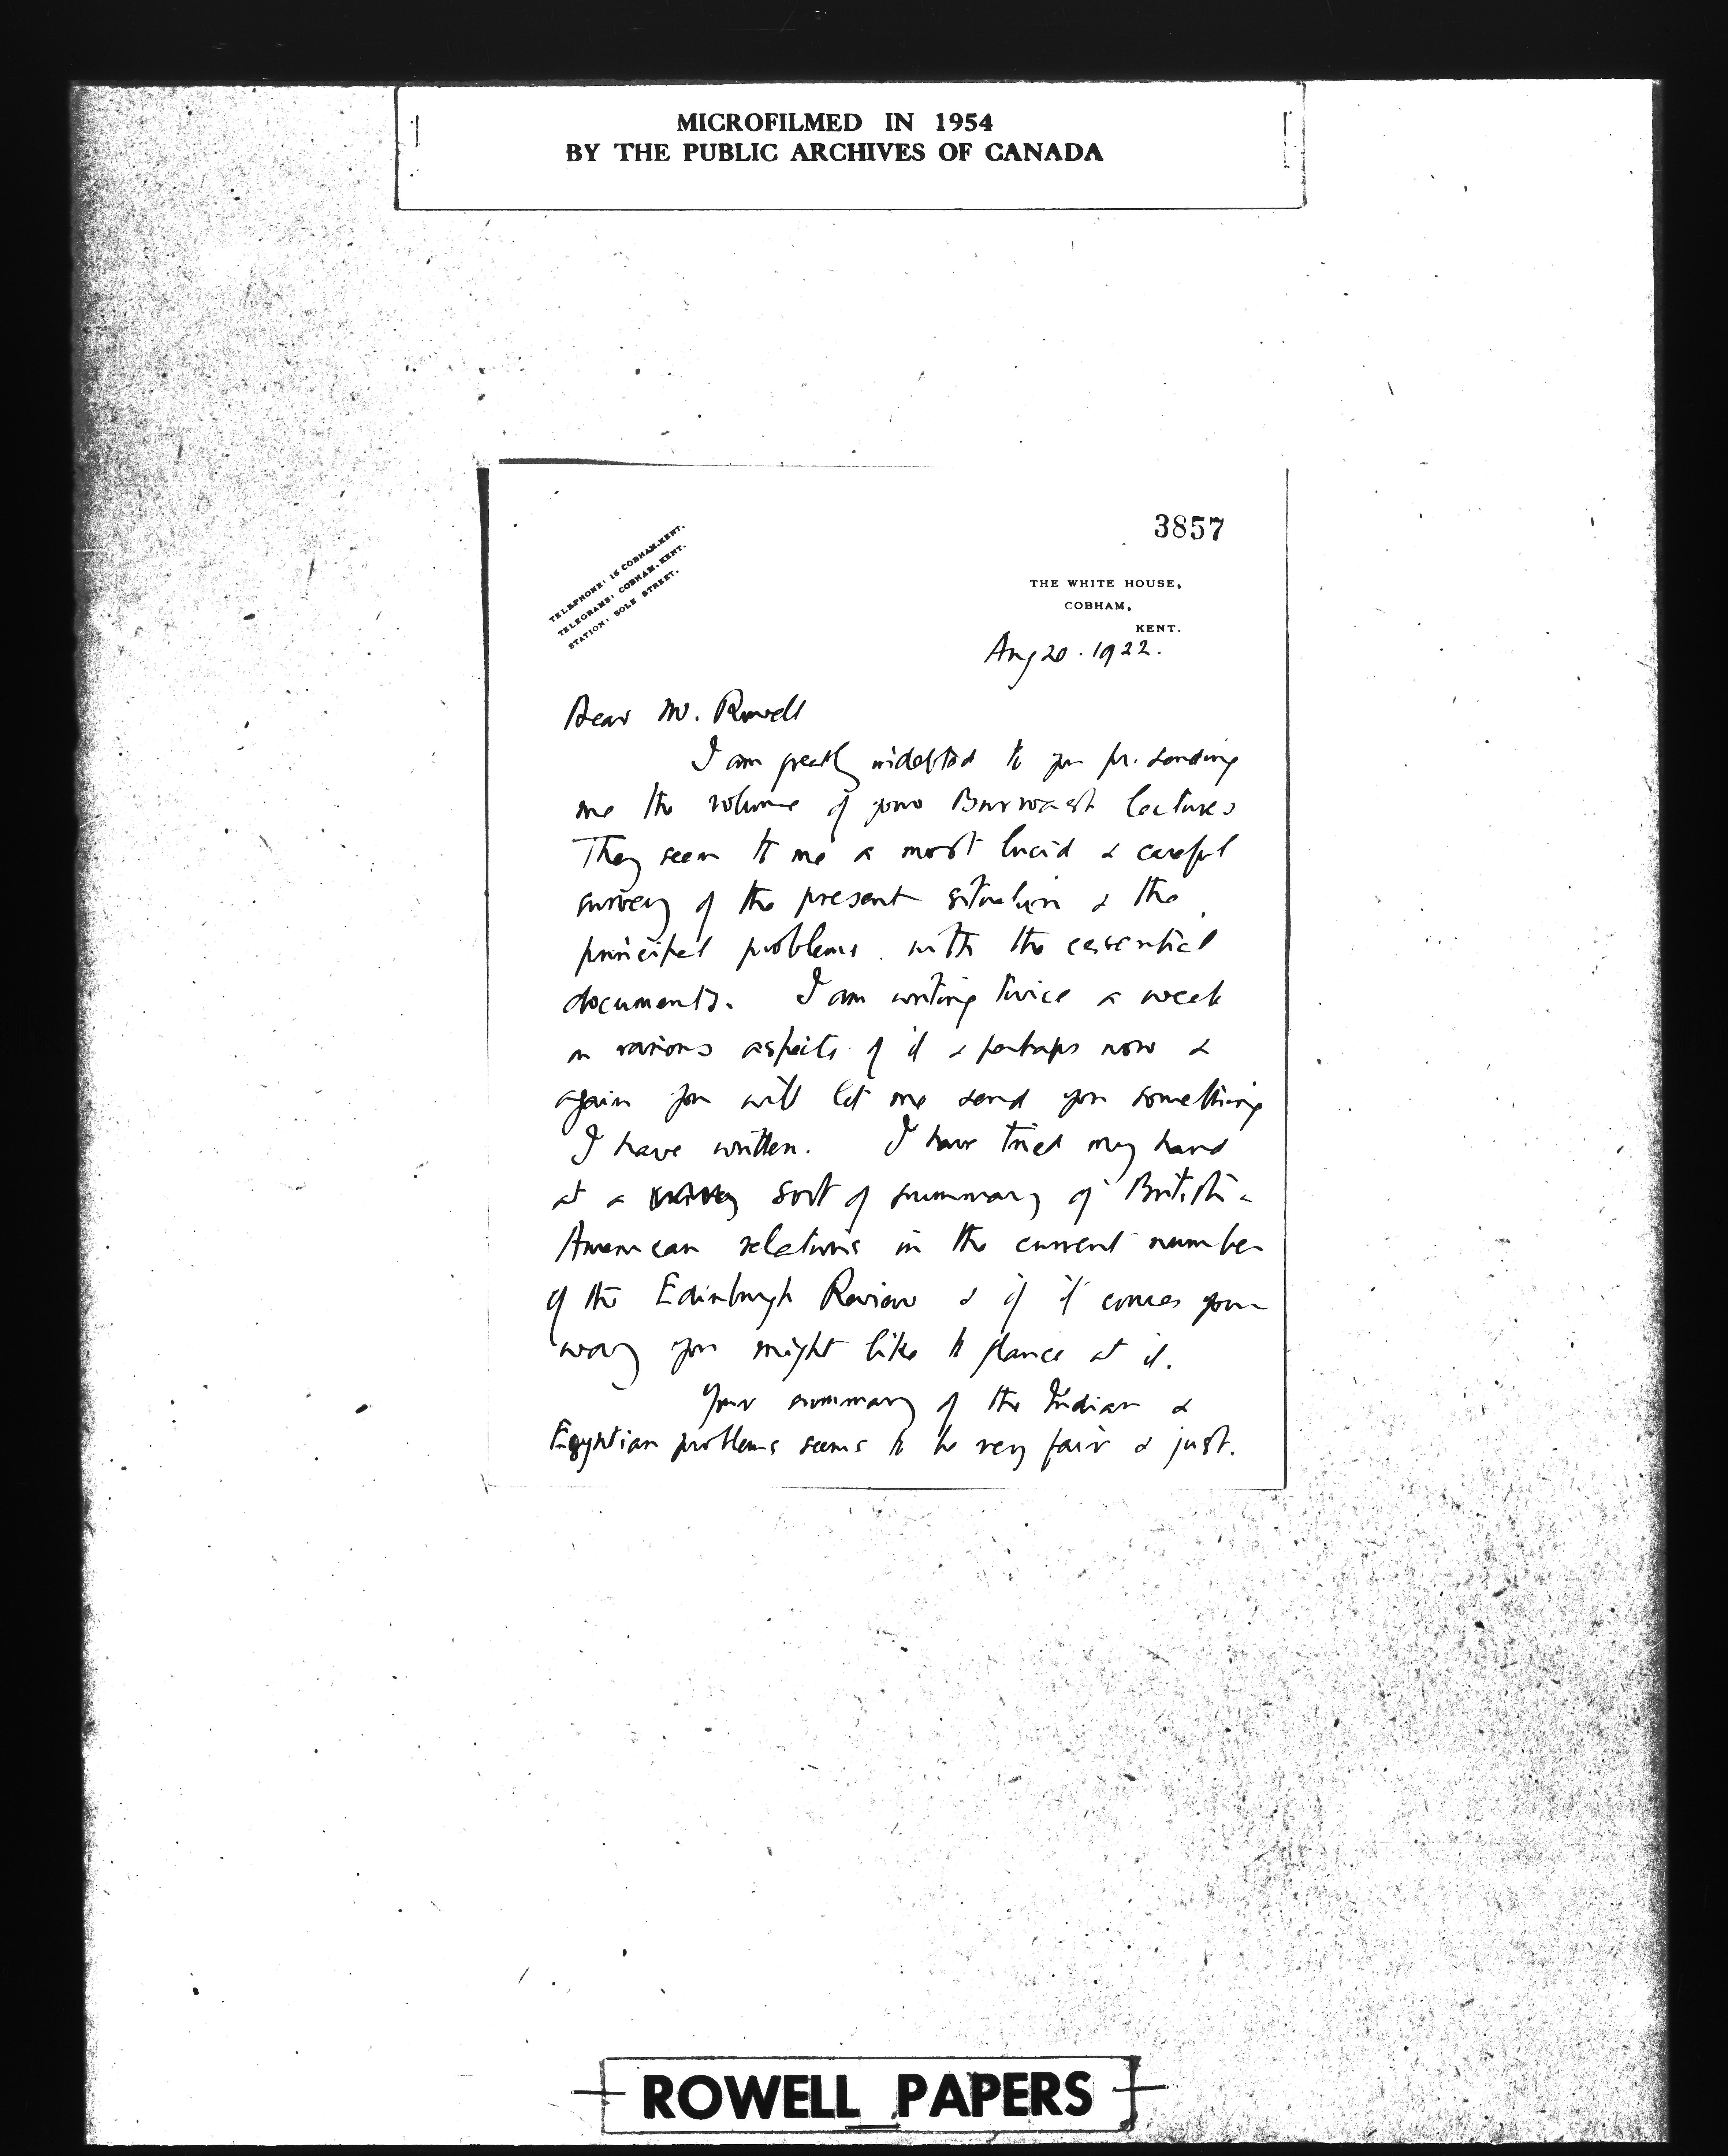 MICROFILMED IN 1954
BY THE PUBLIC ARCHIVES OF CANADA
3857
TELEPHONE: 15 COBHAM, KENT.
TELEGRAMS: COBHAM, KENT.
STATION: SOLE STREET.
THE WHITE HOUSE,
COBHAM,
KENT.
Aug 20. 1922.
Dear Mr. Rowell
I am greatly indebted to you for sending
me the volume of your Burwash lectures
They seem to me a most lucid & careful
survey of the present situation & the
principal problems with the essential
documents. I am writing twice a week
on various aspects of it & perhaps now &
again you will let me send you something
I have written. I have tried my hand
at a sort of summary of British-
American relations in the current number
of the Edinburgh Review & if it comes your
way you might like to glance at it.
Your summary of the Indian &
Egyptian problems seems to be very fair & just.
ROWELL PAPERS